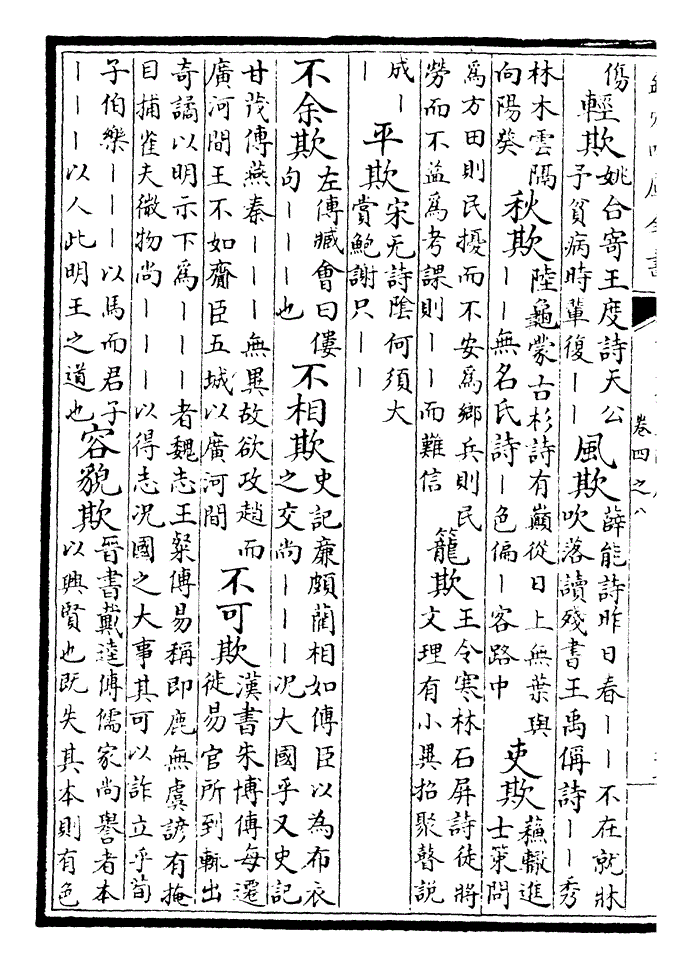 卷四之八
傷
輕欺
姚台寄王度詩天公
予貧病時輩復丨丨
風欺
薛能詩昨日春丨丨不在就牀
吹落讀殘書王禹偁詩丨丨秀
林木雲隔
向陽葵
秋欺
陸龜蒙古杉詩有巔從日上無葉與
丨丨無名氏詩丨色偏丨客路中
吏欺
蘓轍進
士策問
為方田則民擾而不安為鄉兵則民
勞而不益為考課則丨丨而難信
籠欺
王令寒林石屏詩徒將
文理有小異招聚瞽說
成丨
丨
平欺
宋无詩陰何須大
賞鮑謝只丨丨
不余欺
左傳臧會曰僂
句丨丨丨也
不相欺
史記廉頗藺相如傳臣以為布衣
之交尚丨丨丨况大國乎又史記
甘茂傳燕秦丨丨丨無異故欲攻趙而
廣河間王不如齎臣五城以廣河間
不可欺
漢書朱博傳每遷
徙易官所到輒出
奇譎以明示下為丨丨丨者魏志王粲傳易稱即鹿無虞諺有掩
目捕雀夫微物尚丨丨丨以得志况國之大事其可以詐立乎荀
子伯樂丨丨丨以馬而君子
丨丨丨以人此明王之道也
容貌欺
晉書戴逵傳儒家尚譽者本
以興賢也既失其本則有色